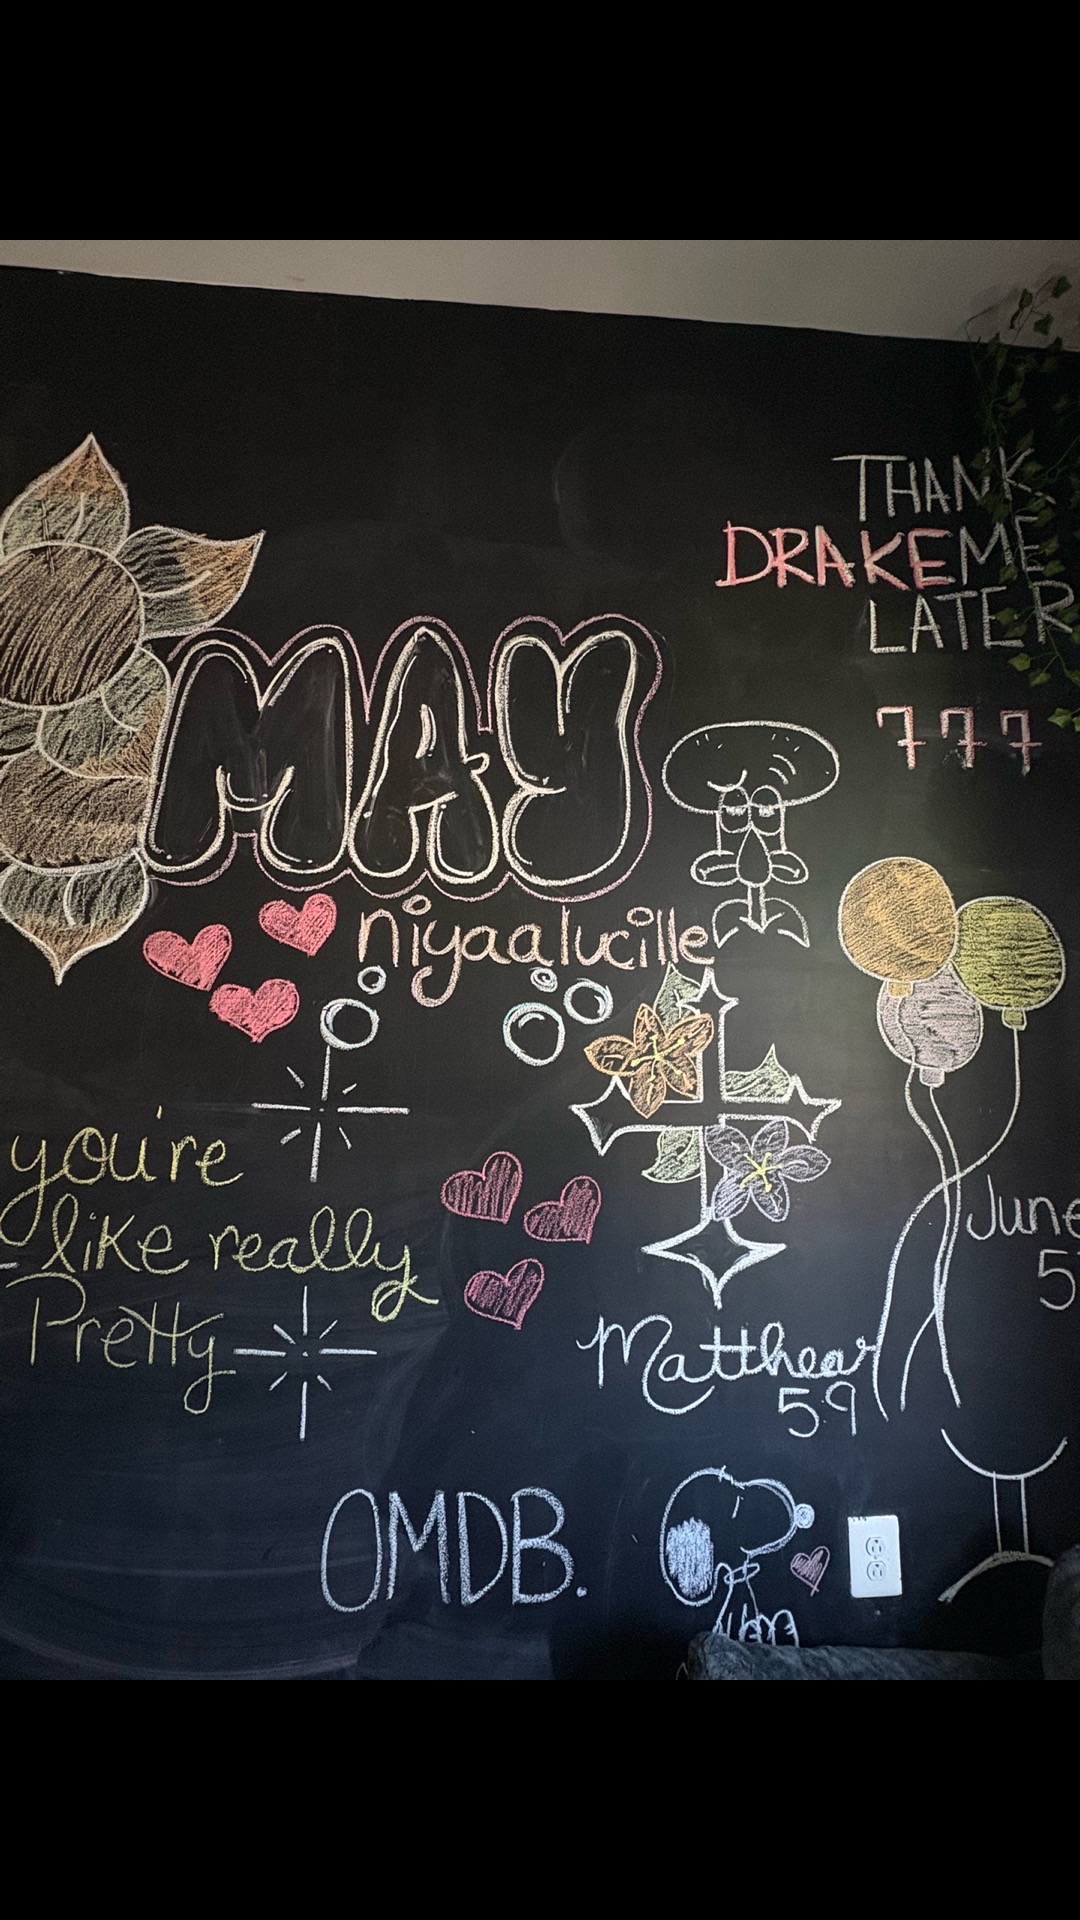 THANK
DRAKEME
LATER
777
MAY
niyaalucille
you're
like really
Pretty
June
5
Matthew
5.9
OMDB.